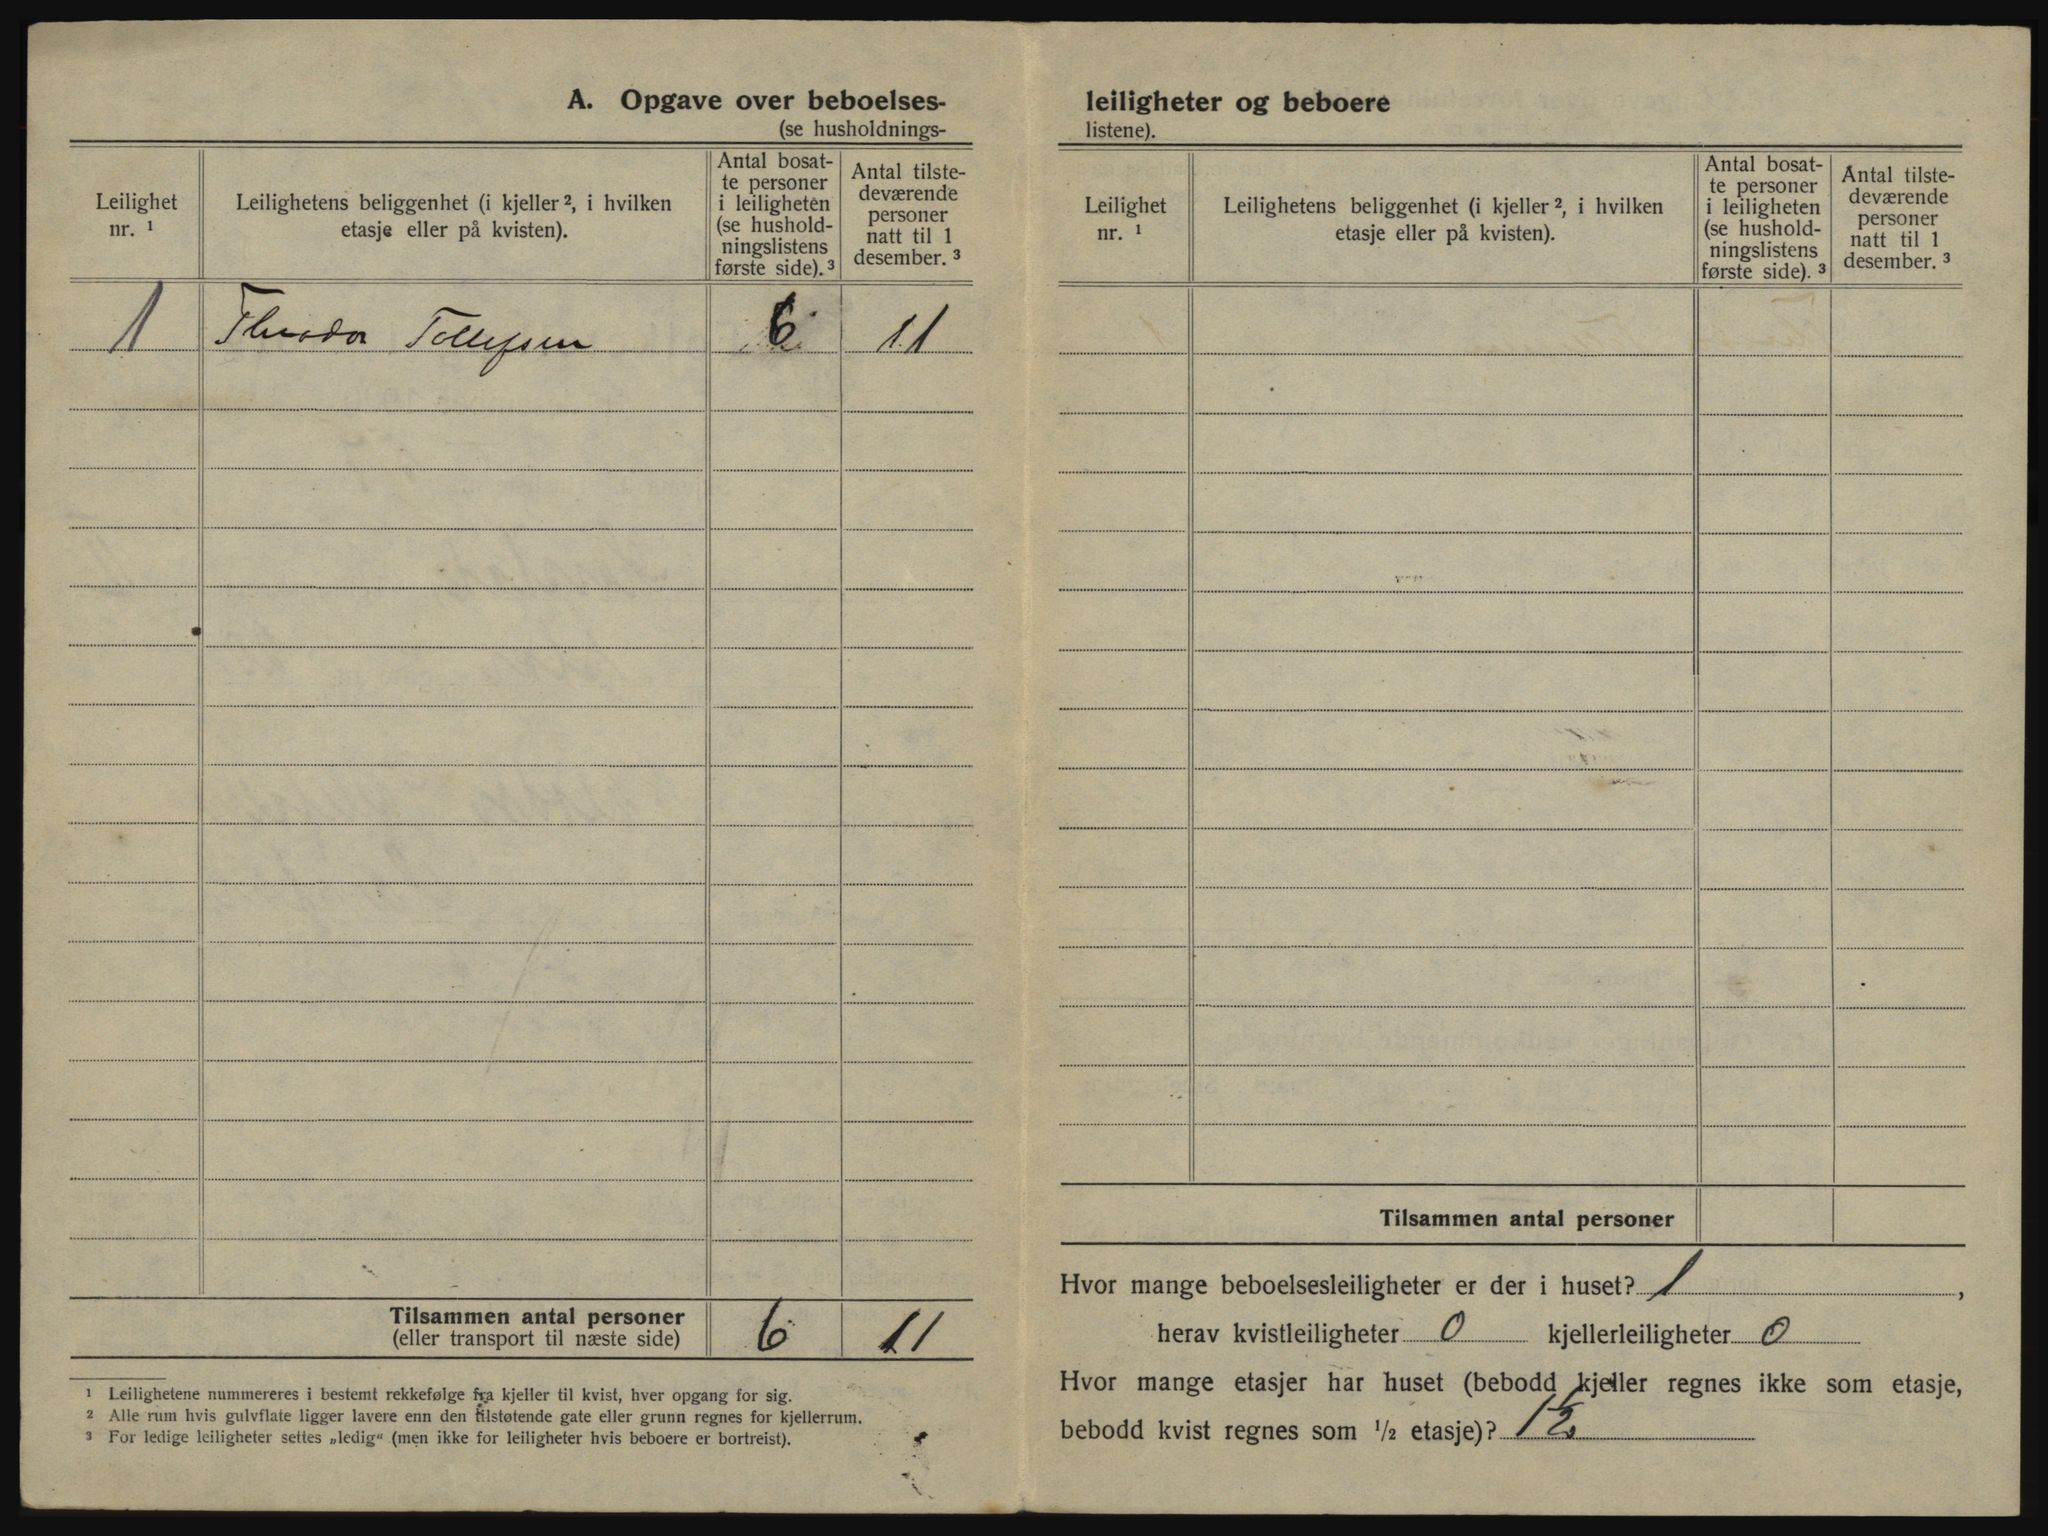 A. Opgave over beboelses-
(se husholdnings-
Leilighet
nr. ¹
Leilighetens beliggenhet (i kjeller ², i hvilken
etasje eller på kvisten).
Antal bosat-
te personer
i leiligheten
(se hushold-
ningslistens
første side). ³
Antal tilste-
deværende
personer
natt til 1
desember. ³
1 Theodor Tollefsen 6 11
Tilsammen antal personer 6 11
(eller transport til næste side)
¹ Leilighetene nummereres i bestemt rekkefølge fra kjeller til kvist, hver opgang for sig.
² Alle rum hvis gulvflate ligger lavere enn den tilstøtende gate eller grunn regnes for kjellerrum.
³ For ledige leiligheter settes „ledig“ (men ikke for leiligheter hvis beboere er bortreist).
leiligheter og beboere
listene).
Leilighet
nr. ¹
Leilighetens beliggenhet (i kjeller ², i hvilken
etasje eller på kvisten).
Antal bosat-
te personer
i leiligheten
(se hushold-
ningslistens
første side). ³
Antal tilste-
deværende
personer
natt til 1
desember. ³
Tilsammen antal personer
Hvor mange beboelsesleiligheter er der i huset? 1,
herav kvistleiligheter 0 kjellerleiligheter 0
Hvor mange etasjer har huset (bebodd kjeller regnes ikke som etasje,
bebodd kvist regnes som ½ etasje)? 1½